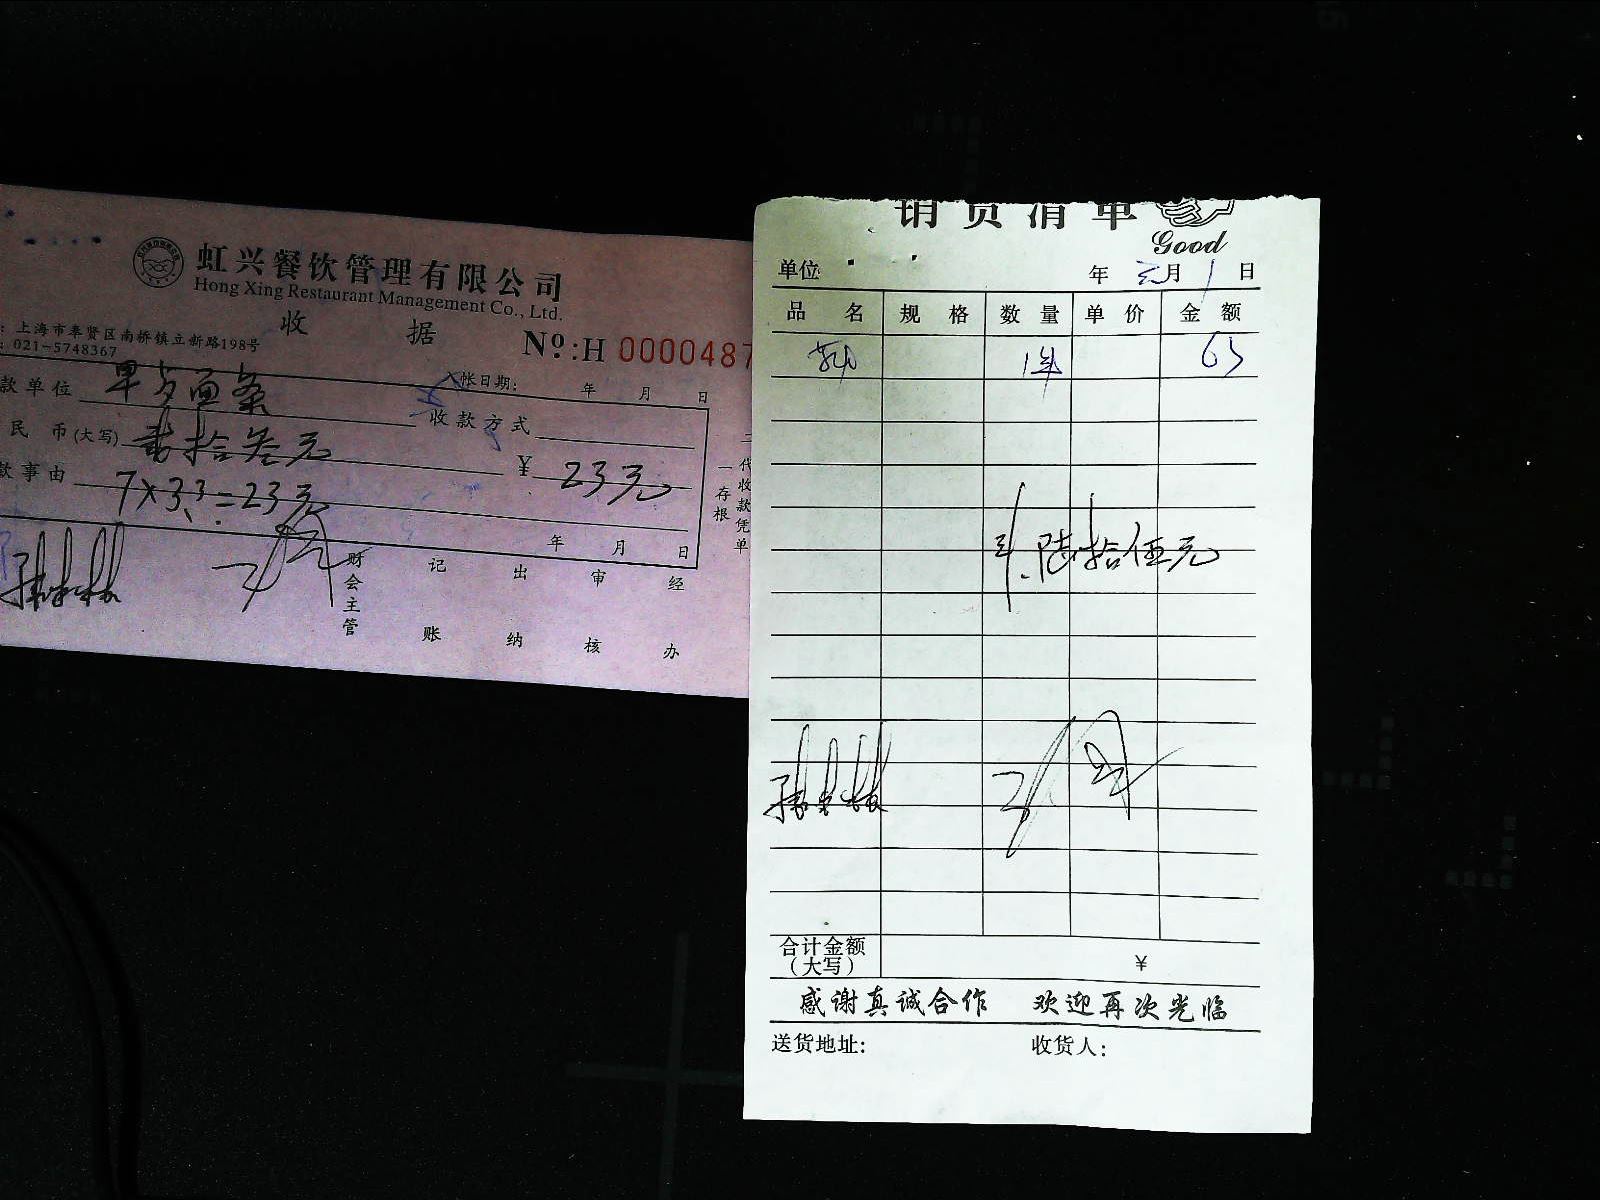 虹兴餐饮管理有限公司
Hong Xing Restaurant Management Co., Ltd.
收 据
: 上海市奉贤区南桥镇立新路198号
: 021-5748367
Nº:H 0000487
入帐日期: 年 月 日
款单位 早点面条
收款方式
民 币(大写) 贰拾叁元
¥ 23元
款事由 7×3.3=23元
年 月 日
二代收款凭单
一存根
财会主管 记账 出纳 审核 经办
销货清单
Good
单位 年 三月 1 日
品 名 规 格 数 量 单 价 金 额
65
陆拾伍元
合计金额
(大写) ¥
感谢真诚合作 欢迎再次光临
送货地址: 收货人: